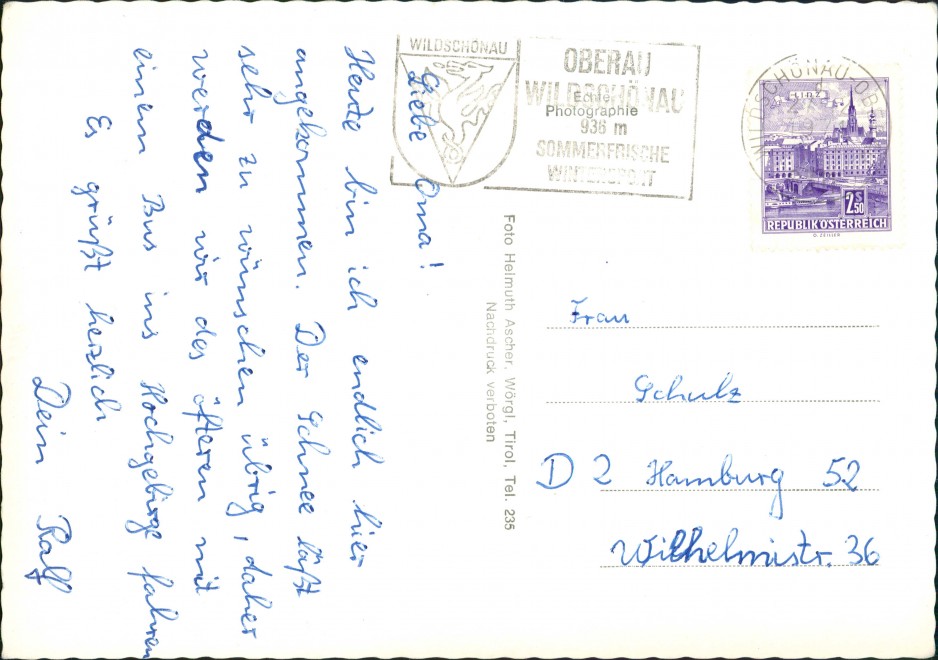 Liebe Oma!
Heute bin ich endlich hier
angekommen. Der Schnee läßt
sehr zu wünschen übrig, daher
werden wir des öfteren mit
einem Bus ins Hochgebirge fahren
Es grüßt herzlich
Dein Ralf
WILDSCHÖNAU
OBERAU
WILDSCHÖNAU
936 m
SOMMERFRISCHE
WINTERSPORT
Echte
Photographie
WILDSCHÖNAU-OB
LINZ
2 S 50
REPUBLIK ÖSTERREICH
O. ZEILLER
Foto Helmuth Ascher, Wörgl, Tirol, Tel. 235
Nachdruck verboten
Frau
Schulz
D 2 Hamburg 52
Wilhelmistr. 36